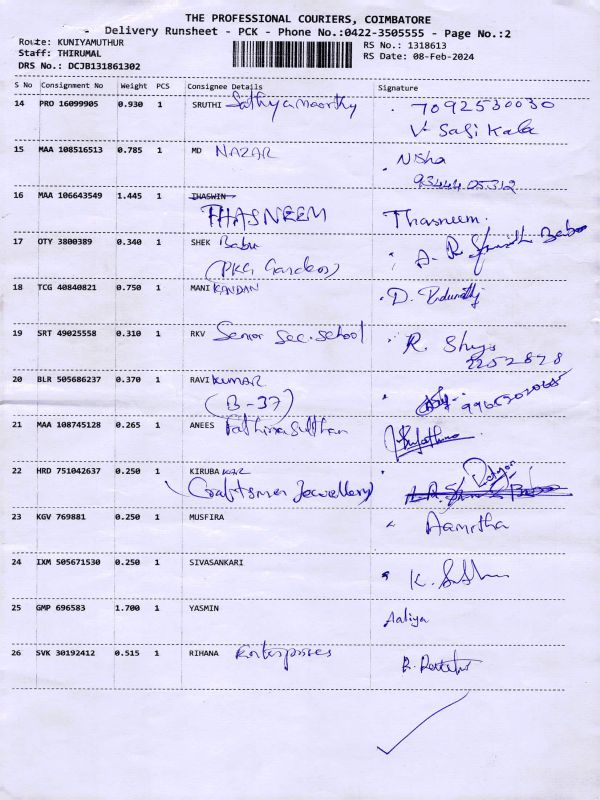 THE PROFESSIONAL COURIERS, COIMBATORE
- Delivery Runsheet - PCK - Phone No.:0422-3505555 - Page No.:2
Route: KUNIYAMUTHUR
RS No.: 1318613
Staff: THIRUMAL
RS Date: 08-Feb-2024
DRS No.: DCJB131861302
S No Consignment No Weight PCS Consignee Details Signature
14 PRO 16099905 0.930 1 SRUTHI Sathyamoorthy 7092530030
V. Sasi Kala
15 MAA 108516513 0.785 1 MD NAZAR Nisha
9344405312
16 MAA 106643549 1.445 1 THASWIN
THASNEEM Thasneem.
17 OTY 3800389 0.340 1 SHEK Babu
(PKG Garden)
18 TCG 40840821 0.750 1 MANI KANDAN D.
19 SRT 49025558 0.310 1 RKV Senior Sec. School R.
9252828
20 BLR 505686237 0.370 1 RAVI KUMAR
(B-37)
21 MAA 108745128 0.265 1 ANEES Fathima Sulthan
22 HRD 751042637 0.250 1 KIRUBA KAR
(Craftsman Jewellery)
23 KGV 769881 0.250 1 MUSFIRA Aamitha
24 IXM 505671530 0.250 1 SIVASANKARI K.
25 GMP 696583 1.700 1 YASMIN Aaliya
26 SVK 30192412 0.515 1 RIHANA Enterprises R.